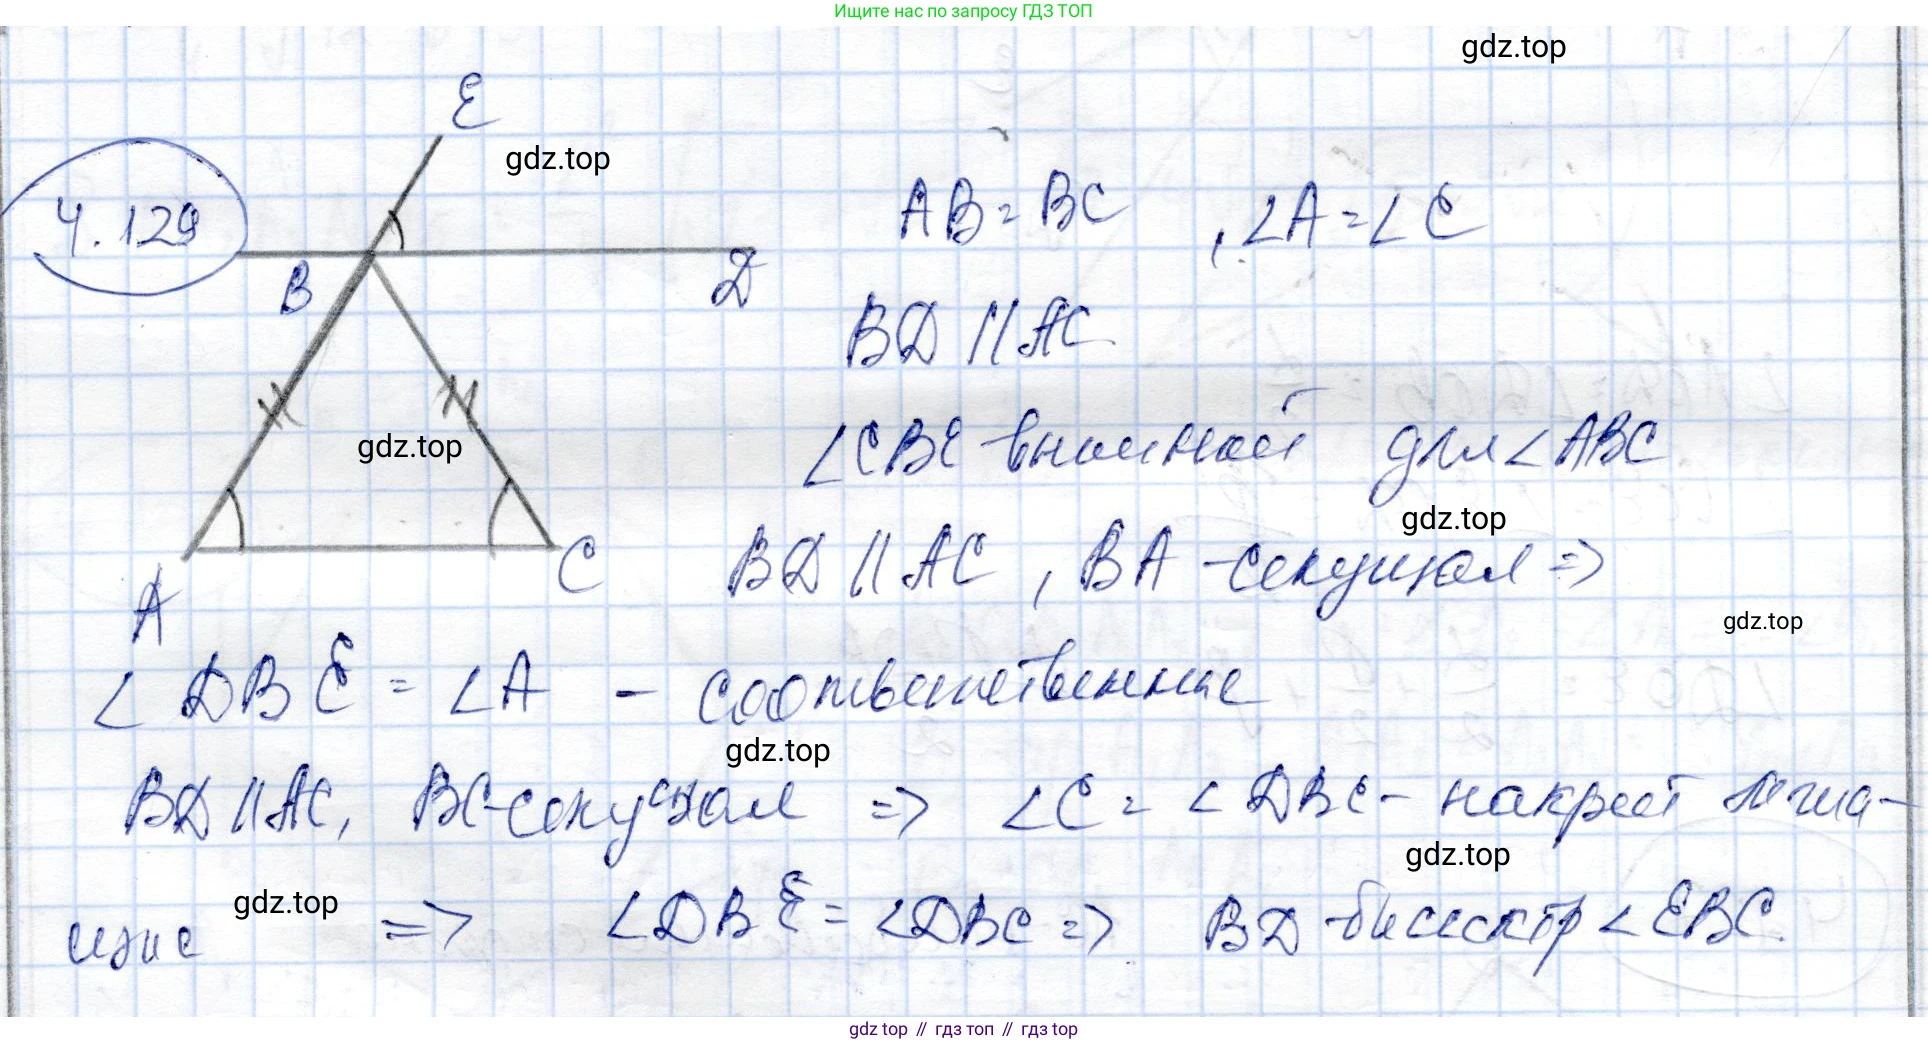 Ищите нас по запросу ГДЗ ТОП
gdz.top
E
gdz.top
4.129
AB = BC , ∠A = ∠C
B
D
BD || AC
gdz.top
∠CBE - внешний для ∠ABC
gdz.top
BD || AC , BA - секущая =>
A
C
gdz.top
∠DBE = ∠A - соответственные
gdz.top
BD || AC, BC - секущая => ∠C = ∠DBC - накрест лежа-
gdz.top
щие => ∠DBE = ∠DBC => BD - биссектр ∠EBC
gdz.top
gdz top // гдз топ // gdz top